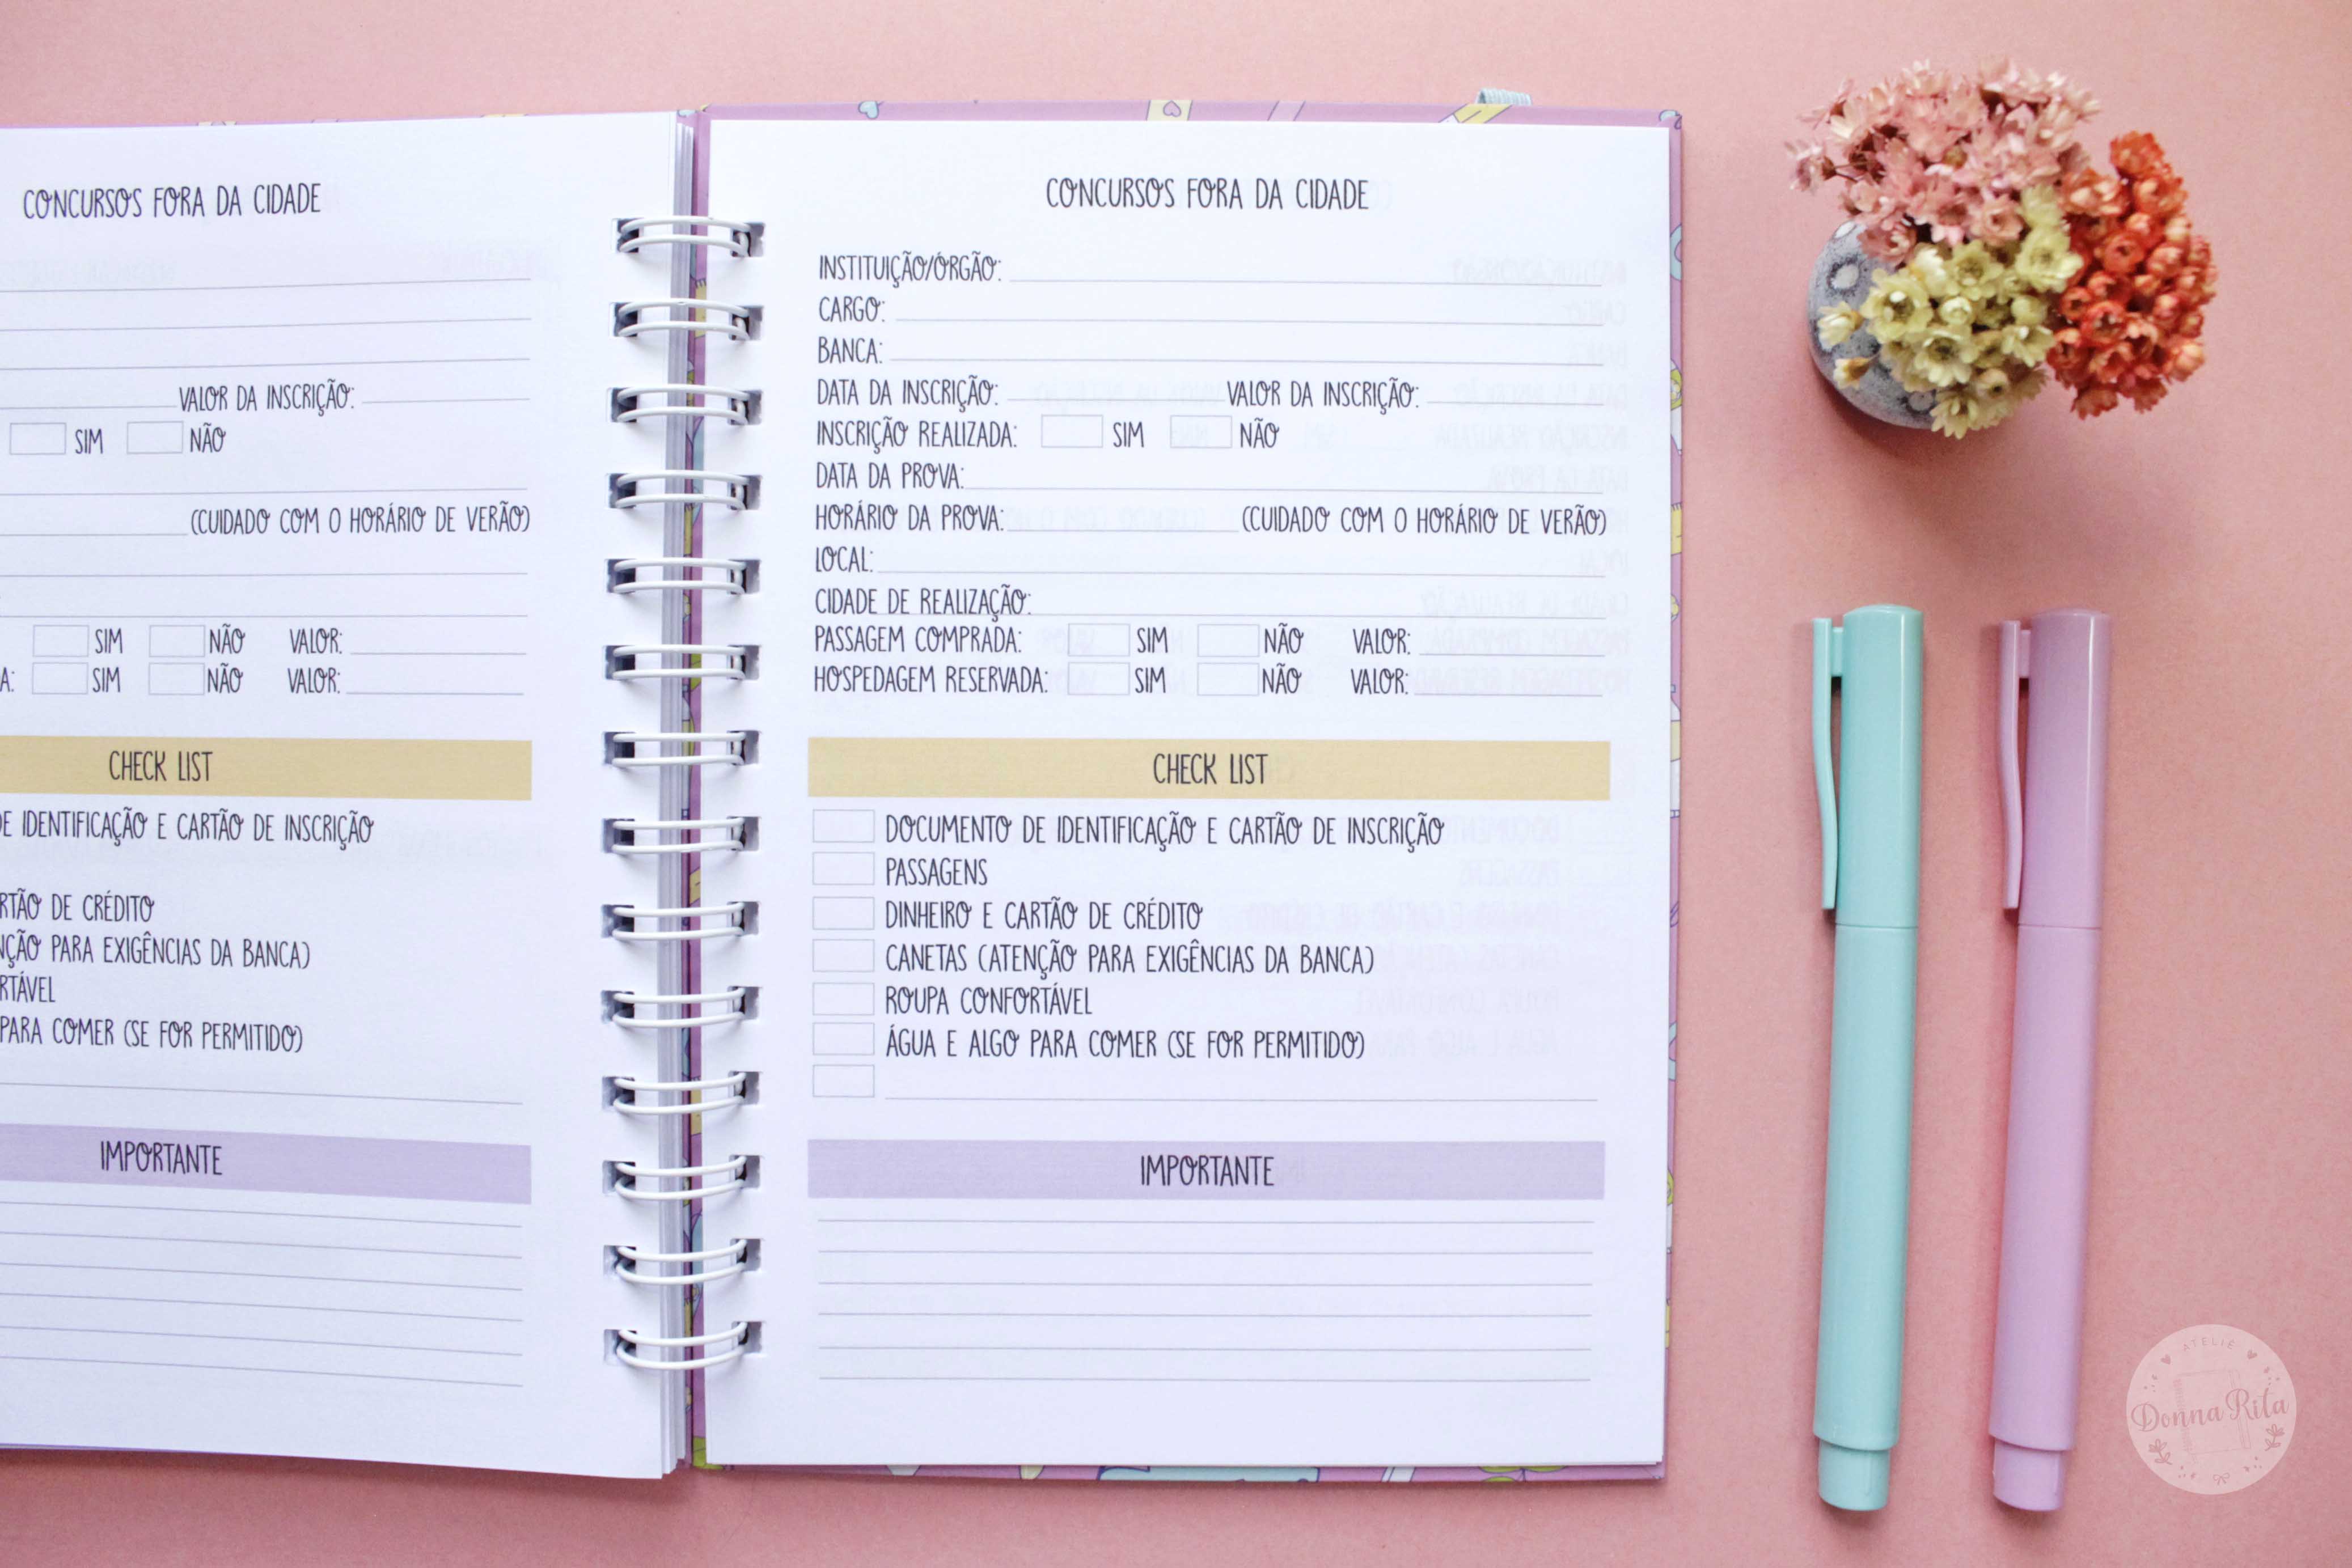 CONCURSOS FORA DA CIDADE
VALOR DA INSCRIÇÃO:
SIM NÃO
(CUIDADO COM O HORÁRIO DE VERÃO)
SIM NÃO VALOR:
A: SIM NÃO VALOR:
CHECK LIST
DE IDENTIFICAÇÃO E CARTÃO DE INSCRIÇÃO
RTÃO DE CRÉDITO
NÇÃO PARA EXIGÊNCIAS DA BANCA)
RTÁVEL
PARA COMER (SE FOR PERMITIDO)
IMPORTANTE
CONCURSOS FORA DA CIDADE
INSTITUIÇÃO/ÓRGÃO:
CARGO:
BANCA:
DATA DA INSCRIÇÃO: VALOR DA INSCRIÇÃO:
INSCRIÇÃO REALIZADA: SIM NÃO
DATA DA PROVA:
HORÁRIO DA PROVA: (CUIDADO COM O HORÁRIO DE VERÃO)
LOCAL:
CIDADE DE REALIZAÇÃO:
PASSAGEM COMPRADA: SIM NÃO VALOR:
HOSPEDAGEM RESERVADA: SIM NÃO VALOR:
CHECK LIST
DOCUMENTO DE IDENTIFICAÇÃO E CARTÃO DE INSCRIÇÃO
PASSAGENS
DINHEIRO E CARTÃO DE CRÉDITO
CANETAS (ATENÇÃO PARA EXIGÊNCIAS DA BANCA)
ROUPA CONFORTÁVEL
ÁGUA E ALGO PARA COMER (SE FOR PERMITIDO)
IMPORTANTE
ATELIE
Donna Rita